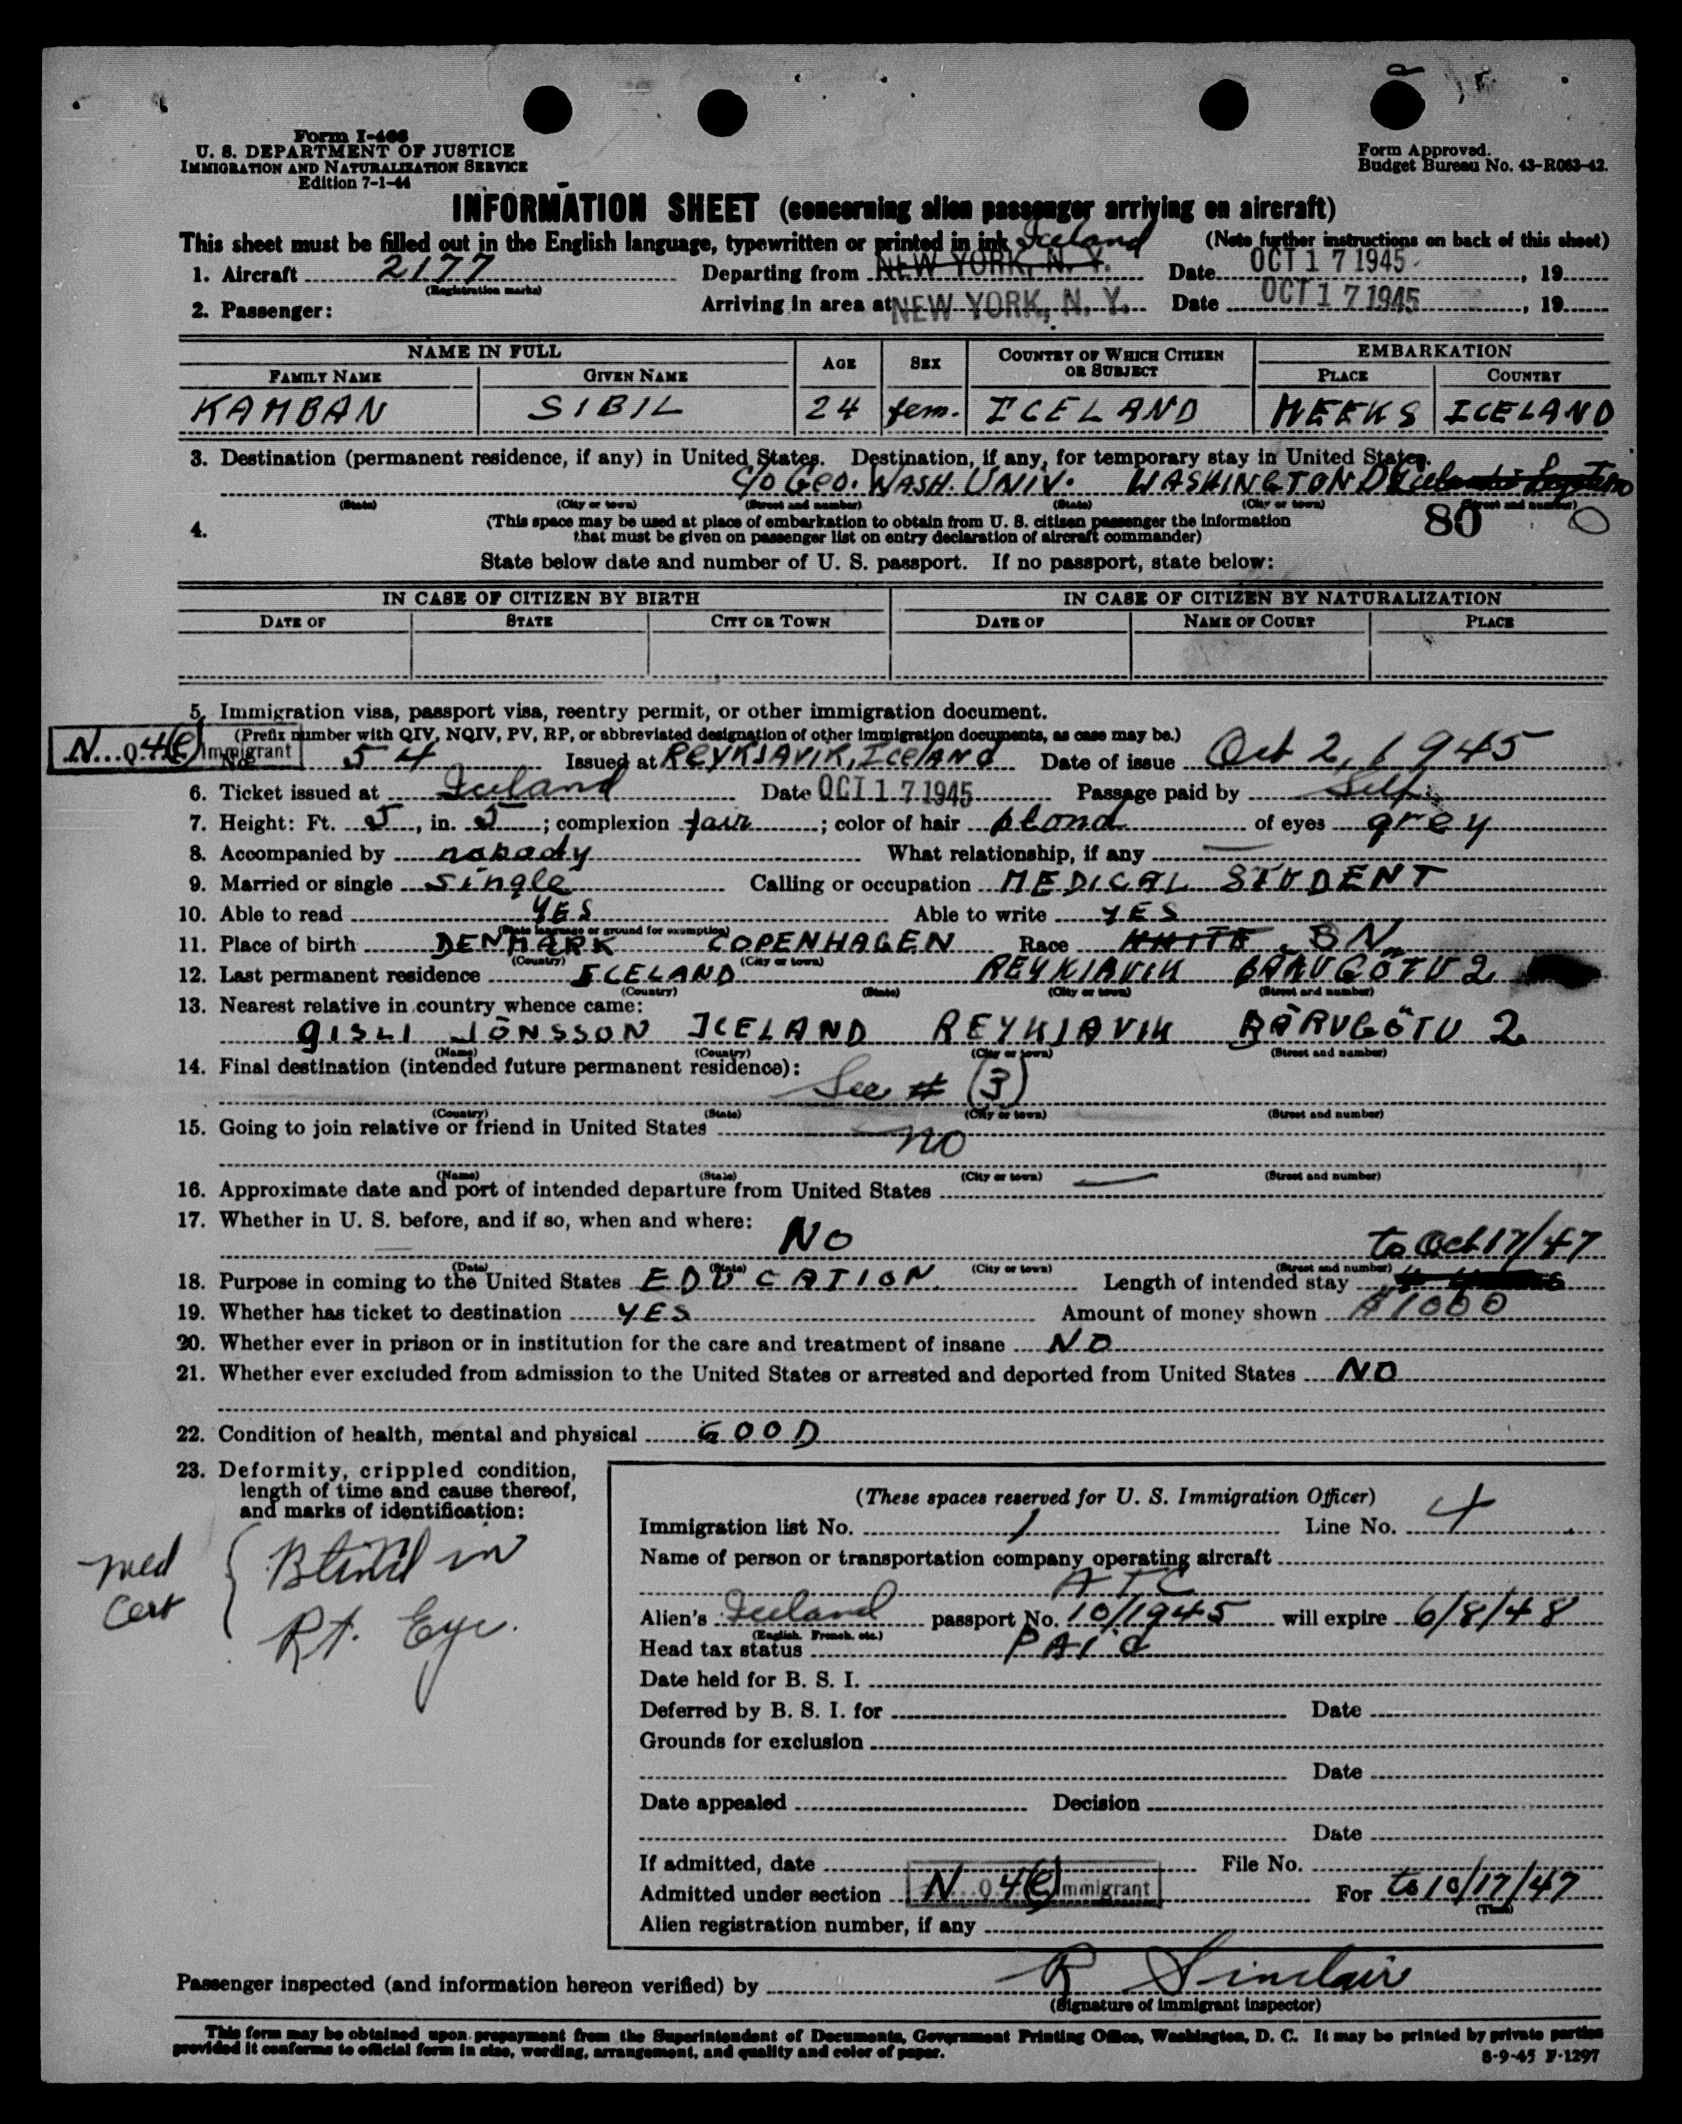 Form I-466
U. S. DEPARTMENT OF JUSTICE
IMMIGRATION AND NATURALIZATION SERVICE
Edition 7-1-44
Form Approved.
Budget Bureau No. 43-R063-42.
INFORMATION SHEET (concerning alien passenger arriving on aircraft)
This sheet must be filled out in the English language, typewritten or printed in ink (Note further instructions on back of this sheet)
Iceland
1. Aircraft 2177 Departing from NEW YORK, N. Y. Date OCT 17 1945, 19
(Registration marks)
2. Passenger: Arriving in area at NEW YORK, N. Y. Date OCT 17 1945, 19
NAME IN FULL AGE SEX COUNTRY OF WHICH CITIZEN OR SUBJECT EMBARKATION
FAMILY NAME GIVEN NAME PLACE COUNTRY
KAMBAN SIBIL 24 fem. ICELAND MEEKS ICELAND
3. Destination (permanent residence, if any) in United States. Destination, if any, for temporary stay in United States.
c/o Geo. WASH. UNIV. WASHINGTON D
(State) (City or town) (Street and number) (State) (City or town) (Street and number)
4. (This space may be used at place of embarkation to obtain from U. S. citizen passenger the information
that must be given on passenger list on entry declaration of aircraft commander)
80
State below date and number of U. S. passport. If no passport, state below:
IN CASE OF CITIZEN BY BIRTH IN CASE OF CITIZEN BY NATURALIZATION
DATE OF STATE CITY OR TOWN DATE OF NAME OF COURT PLACE
5. Immigration visa, passport visa, reentry permit, or other immigration document.
(Prefix number with QIV, NQIV, PV, RP, or abbreviated designation of other immigration documents, as case may be.)
N...Q.4(e) Immigrant
No. 54 Issued at REYKJAVIK, ICELAND Date of issue Oct 2, 1945
6. Ticket issued at Iceland Date OCT 17 1945 Passage paid by Self
7. Height: Ft. 5, in. 5; complexion fair; color of hair blond of eyes grey
8. Accompanied by nobody What relationship, if any —
9. Married or single single Calling or occupation MEDICAL STUDENT
10. Able to read YES Able to write YES
(State language or ground for exemption)
11. Place of birth DENMARK COPENHAGEN Race WHITE
(Country) (City or town)
12. Last permanent residence ICELAND REYKJAVIK BÁRUGÖTU 2
(Country) (State) (City or town) (Street and number)
13. Nearest relative in country whence came:
GISLI JÓNSSON ICELAND REYKJAVIK BÁRUGÖTU 2
(Name) (Country) (City or town) (Street and number)
14. Final destination (intended future permanent residence):
See # (3)
(Country) (State) (City or town) (Street and number)
15. Going to join relative or friend in United States
NO
(Name) (State) (City or town) (Street and number)
16. Approximate date and port of intended departure from United States —
17. Whether in U. S. before, and if so, when and where:
NO to Oct 17/47
(Date) (State) (City or town) (Street and number)
18. Purpose in coming to the United States EDUCATION Length of intended stay
19. Whether has ticket to destination YES Amount of money shown $1000
20. Whether ever in prison or in institution for the care and treatment of insane NO
21. Whether ever excluded from admission to the United States or arrested and deported from United States NO
22. Condition of health, mental and physical GOOD
23. Deformity, crippled condition,
length of time and cause thereof,
and marks of identification:
Med Cert { Blind in
Rt. Eye.
(These spaces reserved for U. S. Immigration Officer)
Immigration list No. 1 Line No. 4
Name of person or transportation company operating aircraft
ATC
Alien's Iceland passport No. 10/1945 will expire 6/8/48
(English, French, etc.)
Head tax status PAID
Date held for B. S. I.
Deferred by B. S. I. for Date
Grounds for exclusion
Date
Date appealed Decision
Date
If admitted, date File No.
Admitted under section N...Q.4(e) Immigrant For to 10/17/47
(Time)
Alien registration number, if any
Passenger inspected (and information hereon verified) by R Sinclair
(Signature of immigrant inspector)
This form may be obtained upon prepayment from the Superintendent of Documents, Government Printing Office, Washington, D. C. It may be printed by private parties
provided it conforms to official form in size, wording, arrangement, and quality and color of paper.
8-9-45 F-1297